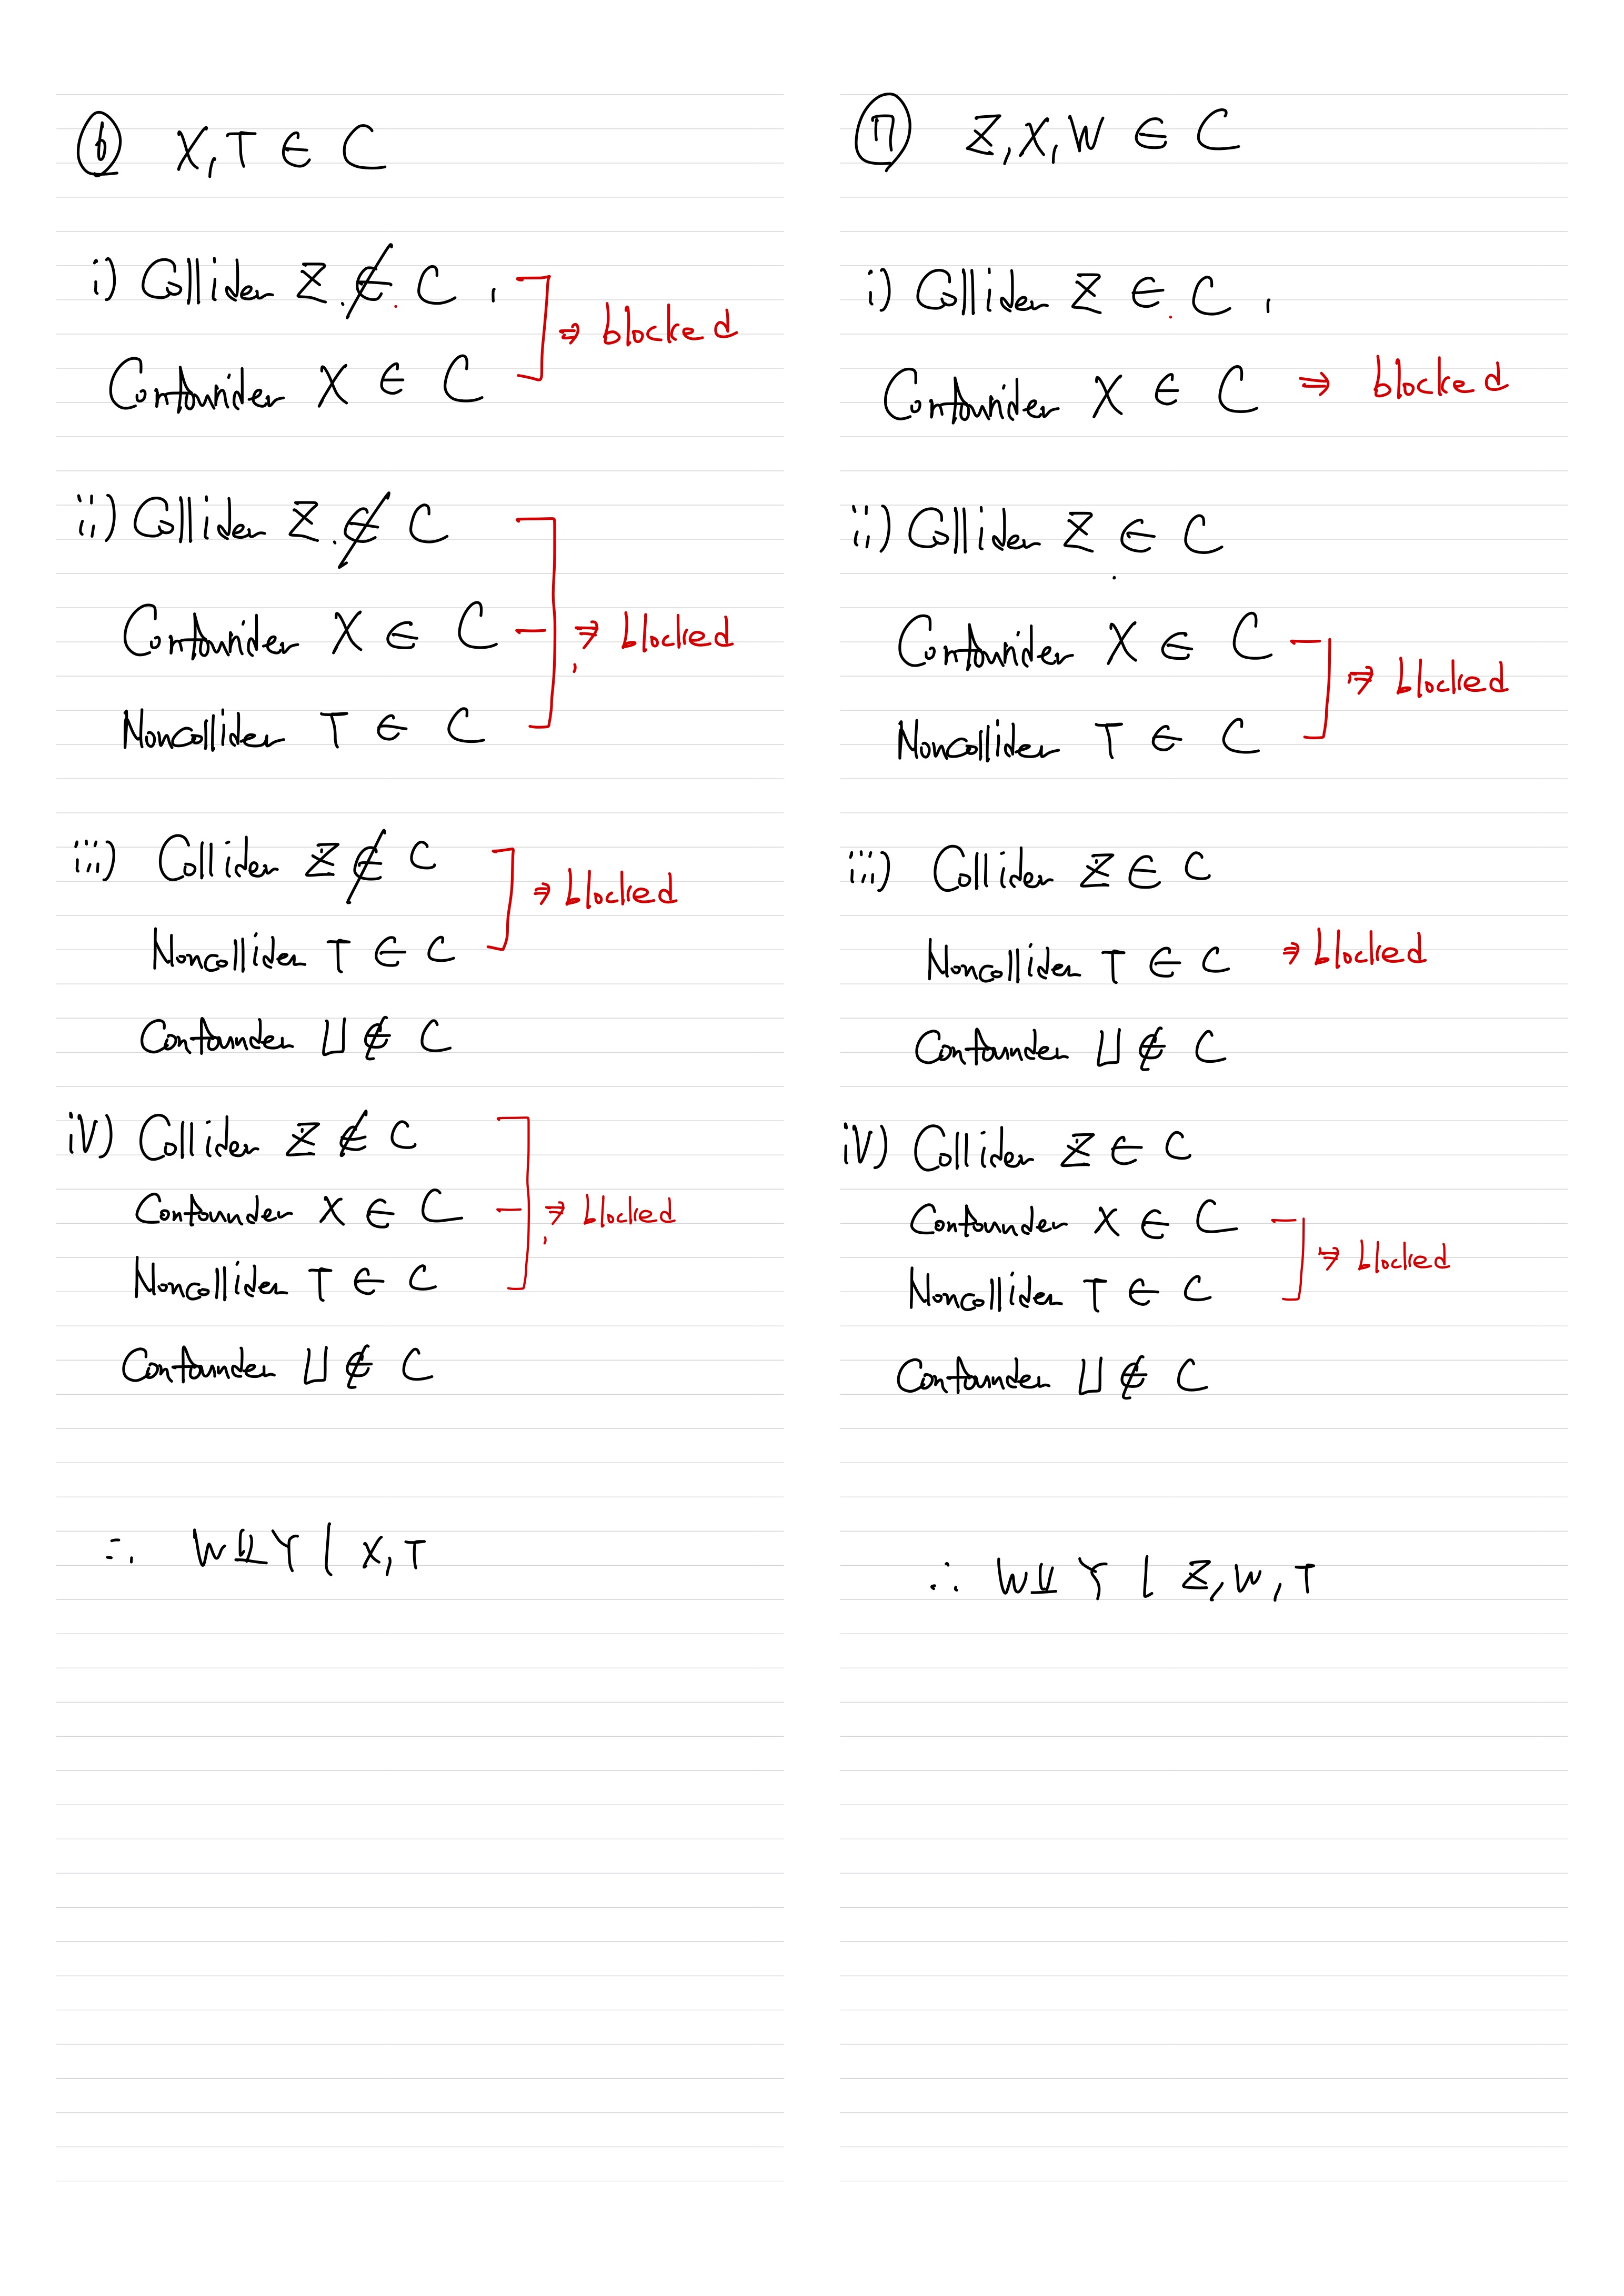 ⑥ X, T ∈ C
i) Collider Z ∉ C,
Confounder X ∈ C
⇒ blocked
ii) Collider Z ∉ C
Confounder X ∈ C
⇒ blocked
Noncollider T ∈ C
iii) Collider Z ∉ C
⇒ blocked
Noncollider T ∈ C
Confounder U ∉ C
iv) Collider Z ∉ C
Confounder X ∈ C
⇒ blocked
Noncollider T ∈ C
Confounder U ∉ C
∴ W ⫫ Y | X, T
⑦ Z, X, W ∈ C
i) Collider Z ∈ C,
Confounder X ∈ C ⇒ blocked
ii) Collider Z ∈ C
Confounder X ∈ C
⇒ blocked
Noncollider T ∈ C
iii) Collider Z ∈ C
Noncollider T ∈ C ⇒ blocked
Confounder U ∉ C
iv) Collider Z ∈ C
Confounder X ∈ C
⇒ blocked
Noncollider T ∈ C
Confounder U ∉ C
∴ W ⫫ Y | Z, W, T